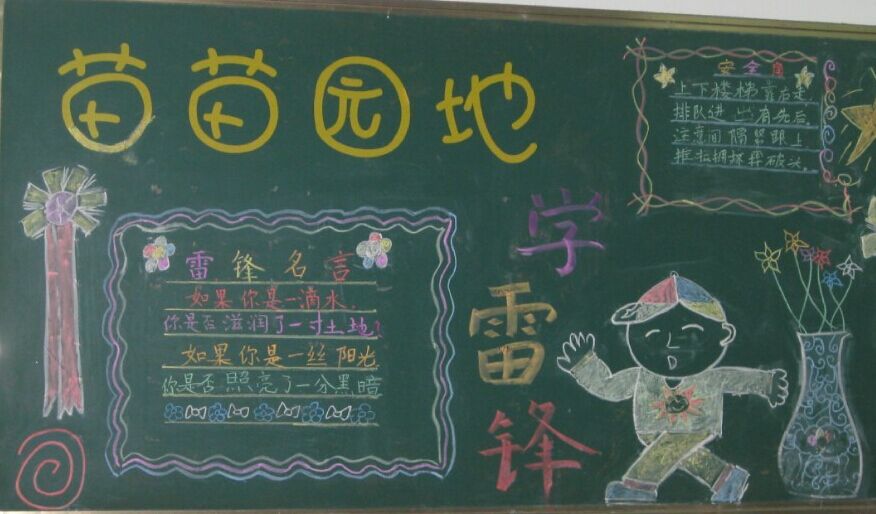 苗苗园地
雷锋名言
如果你是一滴水,
你是否滋润了一寸土地?
如果你是一丝阳光
你是否照亮了一分黑暗
学
雷
锋
安全
上下楼梯靠右走
排队进出有先后
注意间隔紧跟上
推拉拥挤摔破头.